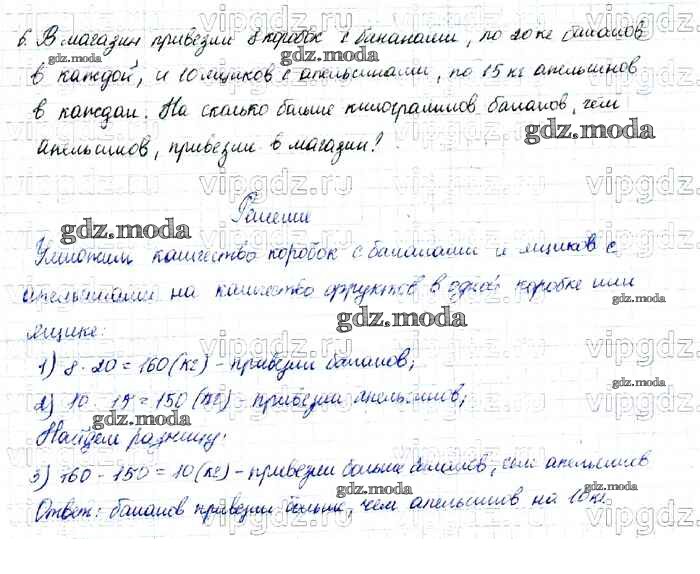 6. В магазин привезли 8 коробок с бананами, по 20 кг бананов
в каждой, и 10 ящиков с апельсинами, по 15 кг апельсинов
в каждом. На сколько больше килограммов бананов, чем
апельсинов, привезли в магазин?
Решение
Умножим количество коробок с бананами и ящиков с
апельсинами на количество фруктов в одной коробке или
ящике:
1) 8 · 20 = 160 (кг) - привезли бананов;
2) 10 · 15 = 150 (кг) - привезли апельсинов;
Найдем разницу:
3) 160 - 150 = 10 (кг) - привезли больше бананов, чем апельсинов
Ответ: бананов привезли больше, чем апельсинов на 10 кг.
gdz.moda
gdz.moda
gdz.moda
gdz.moda
gdz.moda
gdz.moda
gdz.moda
gdz.moda
vipgdz.ru